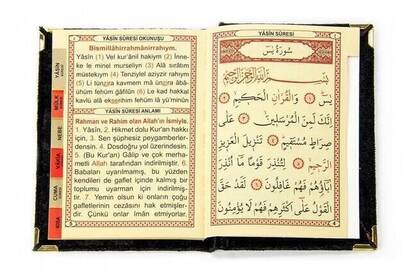 YÂSÎN SÛRESİ OKUNUŞU
Bismillâhirrahmânirrahıym.
Yâsîn (1) Vel kur'ânil hakiym (2) İnne-
ke le minel murseliyn (3) Alâ sırâtım
müstekıym (4) Tenziylel aziyzir rahıym
(5) Li tünzira kavmem mâ ünzira âbâü-
hüm fehüm ğâfilûn (6) Le kad hakkal
kavlü alâ ekserihim fehüm lâ yü'minûn
YÂSÎN SÛRESİ ANLAMI
Rahman ve Rahim olan Allah'ın İsmiyle.
1. Yâsîn, 2. Hikmet dolu Kur'an hakkı
için, 3. Sen şüphesiz peygamberler-
densin. 4. Dosdoğru yol üzerindesin.
5. (Bu Kur'an) Gâlip ve çok merha-
metli Allah tarafından indirilmiştir. 6.
Babaları uyarılmamış, bu yüzden
kendileri de gaflet içinde kalmış bir
toplumu uyarman için indirilmiş-
tir. 7. Yemin olsun ki onların çoğu
gafletlerinin cezasını hak etmişler-
dir. Çünkü onlar îman etmiyorlar.
YÂSÎN
MÜLK
NEBE
VAKIA
CUMA
KISA
YÂSÎN SÛRESİ
سُورَةُ يٰسٓ
بِسْمِ اللّٰهِ الرَّحْمٰنِ الرَّحِيمِ
يٰسٓ ﴿١﴾ وَالْقُرْاٰنِ الْحَكِيمِ ﴿٢﴾
اِنَّكَ لَمِنَ الْمُرْسَلِينَ ﴿٣﴾ عَلٰى
صِرَاطٍ مُسْتَقِيمٍ ﴿٤﴾ تَنْزِيلَ الْعَزِيزِ
الرَّحِيمِ ﴿٥﴾ لِتُنْذِرَ قَوْمًا مَٓا اُنْذِرَ
اٰبَٓاؤُهُمْ فَهُمْ غَافِلُونَ ﴿٦﴾ لَقَدْ حَقَّ
الْقَوْلُ عَلٰٓى اَكْثَرِهِمْ فَهُمْ لَا يُؤْمِنُونَ